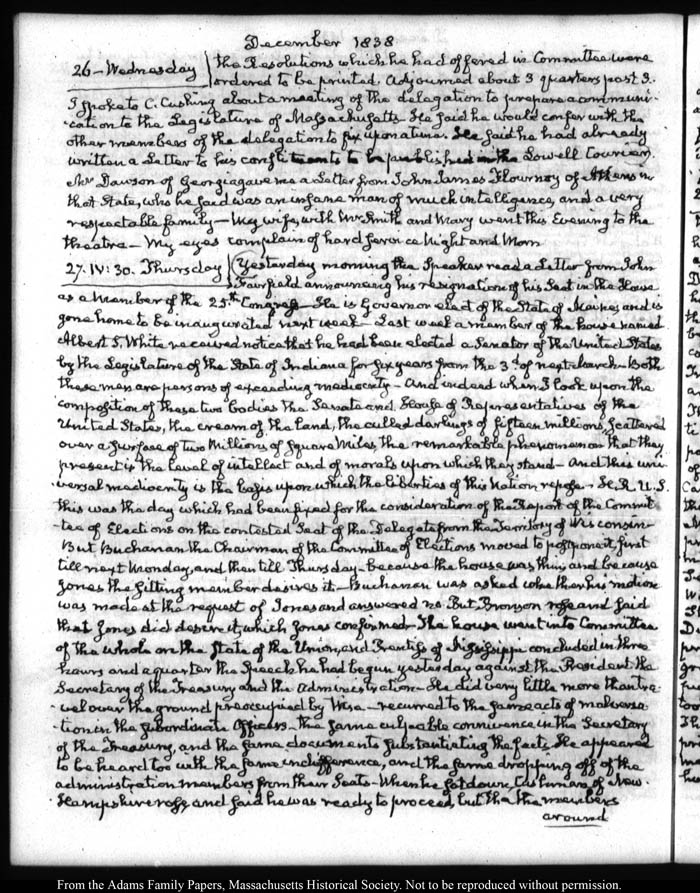 December 1838
26 - Wednesday
the Resolutions which he had offered in Committee were
ordered to be printed. Adjourned about 3 quarters past 3.
I spoke to C. Cushing about a meeting of the delegation to prepare a communi-
-cation to the Legislature of Massachusetts. He said he would confer with the
other members of the delegation to fix upon a time. He said he had already
written a Letter to his constituents to be published in the Lowell Courier.
Mr Dawson of Georgia gave me a Letter from John James Flournoy of Athens in
that State, who he said was an insane man of much intelligence, and a very
respectable family - My wife, with Mrs Smith and Mary went this Evening to the
theatre - My eyes complain of hard service Night and Morn
27. IV: 30. Thursday
Yesterday morning the Speaker read a Letter from John
Fairfield announcing his resignation of his Seat in the House
as a Member of the 25th Congress - He is Governor elect of the State of Maine, and is
gone home to be inaugurated next week - Last week a member of the house named
Albert S. White received notice that he had been elected a Senator of the United States
by the Legislature of the State of Indiana for six years from the 3d of next March - Both
these men are persons of exceeding mediocrity - And indeed when I look upon the
composition of these two bodies the Senate and House of Representatives of the
United States, the cream of the land, the culled darlings of fifteen millions, scattered
over a surface of two Millions of square Miles, the remarkable phenomenon that they
present is the level of intellect and of morals upon which they stand - And this uni-
-versal mediocrity is the basis upon which the liberties of this Nation repose - H. R. U. S.
this was the day which had been fixed for the consideration of the Report of the Commit-
-tee of Elections on the contested Seat of the Delegate from the Territory of Wisconsin -
But Buchanan the Chairman of the Committee of Elections moved to postpone it, first
till next Monday, and then till Thursday - because the house was thin, and because
Jones the sitting member desires it - Buchanan was asked whether his motion
was made at the request of Jones and answered no. But Bronson rose and said
that Jones did desire it, which Jones confirmed - The house went into Committee
of the whole on the State of the Union, and Prentiss of Mississippi concluded in three
hours and a quarter the Speech he had begun yesterday against the President the
Secretary of the Treasury and the Administration - He did very little more than tra-
-vel over the ground preoccupied by Wise - recurred to the same acts of malversa-
-tion in the subordinate Officers - the same culpable connivance in the Secretary
of the Treasury, and the same documents substantiating the facts. He appeared
to be heard too with the same indifference, and the same dropping off of the
administration members from their Seats - When he sat down, Cushman of New-
-Hampshire rose, and said he was ready to proceed, but that the members
around
From the Adams Family Papers, Massachusetts Historical Society. Not to be reproduced without permission.